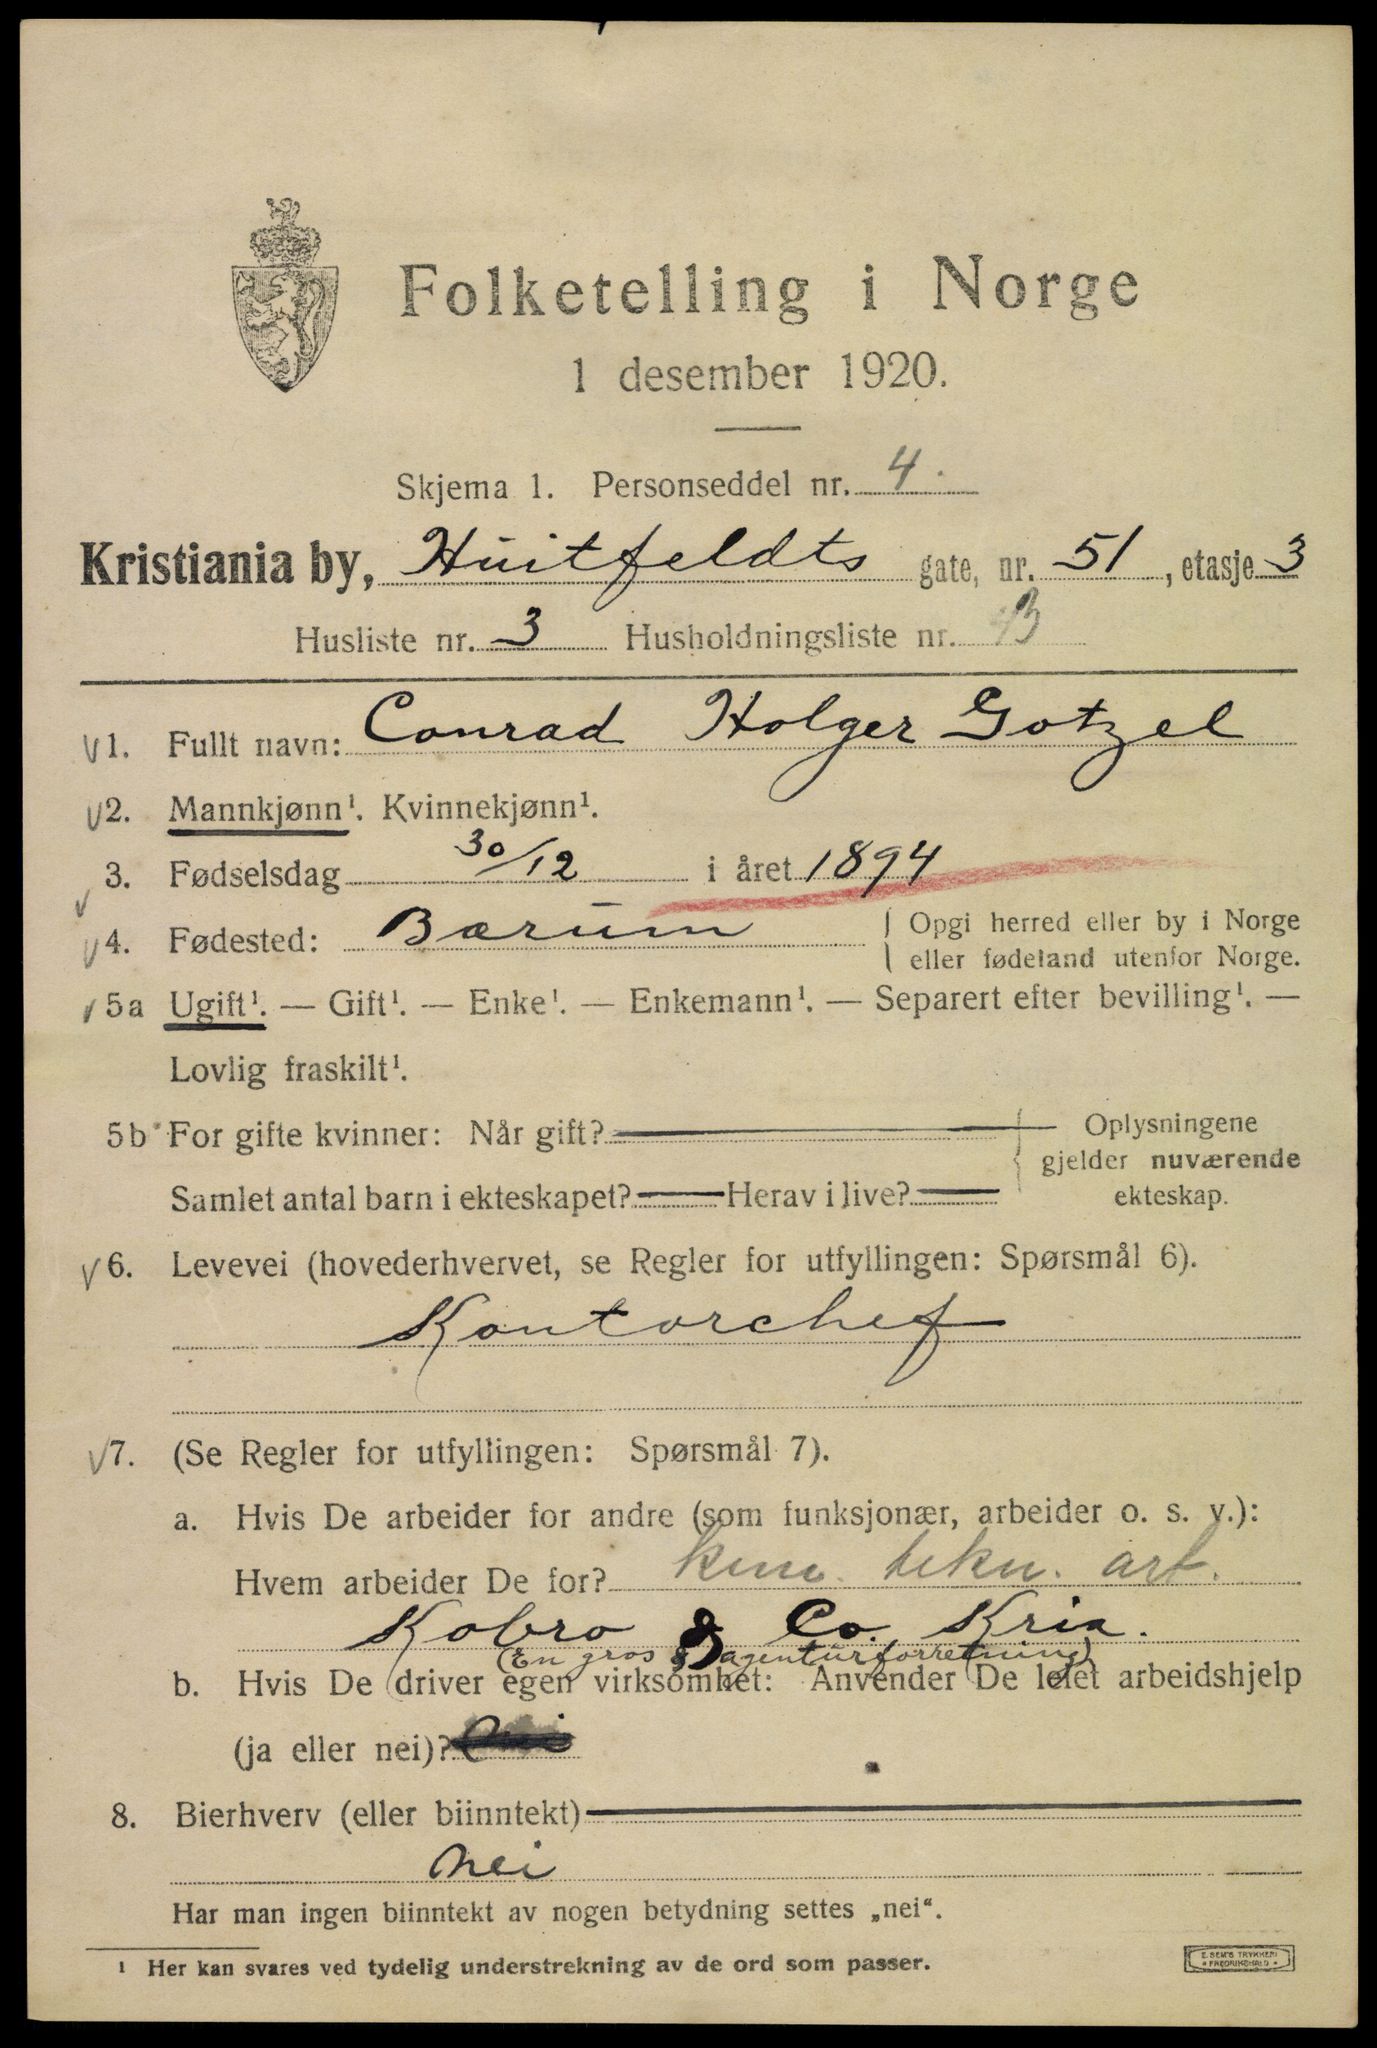 Folketelling i Norge
1 desember 1920.
Skjema 1. Personseddel nr. 4.
Kristiania by, Huitfeldts gate, nr. 51, etasje 3
Husliste nr. 3 Husholdningsliste nr. 3
1. Fullt navn: Conrad Holger Gotzel
2. Mannkjønn¹. Kvinnekjønn¹.
3. Fødselsdag 30/12 i året 1894
4. Fødested: Bærum { Opgi herred eller by i Norge
eller fødeland utenfor Norge.
5a Ugift¹. — Gift¹. — Enke¹. — Enkemann¹. — Separert efter bevilling¹. —
Lovlig fraskilt¹.
5b For gifte kvinner: Når gift? — Oplysningene
gjelder nuværende
Samlet antal barn i ekteskapet? — Herav i live? — ekteskap.
6. Levevei (hovederhvervet, se Regler for utfyllingen: Spørsmål 6).
Kontorchef
7. (Se Regler for utfyllingen: Spørsmål 7).
a. Hvis De arbeider for andre (som funksjonær, arbeider o. s. v.):
Hvem arbeider De for? kem. tekn. art.
Kobro & Co. Kria.
(En gros & agenturforretning)
b. Hvis De driver egen virksomhet: Anvender De leiet arbeidshjelp
(ja eller nei)?
8. Bierhverv (eller biinntekt)
Nei
Har man ingen biinntekt av nogen betydning settes „nei“.
¹ Her kan svares ved tydelig understrekning av de ord som passer.
E. SEM'S TRYKKERI
FREDRIKSHALD